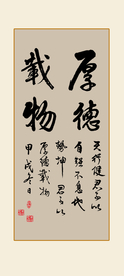 厚德
載物
天行健君子以
自強不息地
勢坤君子以
厚德載物
甲戌冬日